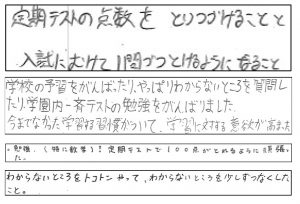 定期テストの点数を とりつづけることと
入試にむけて1問づつとけるようになること
学校の予習をがんばったり、やっぱりわからないところを質問し
たり、学園内一斉テストの勉強をがんばりました。
今までなかった学習する習慣がついて、学習に対する意欲が高まった
・勉強、(特に数学)! 定期テストで100点がとれるように頑張っ
た。
わからないところをトコトンやって、わからないところを少しずつなくした
こと。